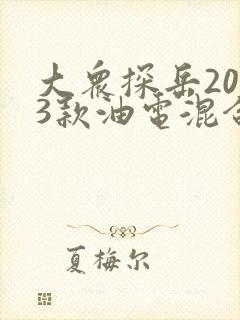 大众探岳20
3款油电混合
夏梅尔